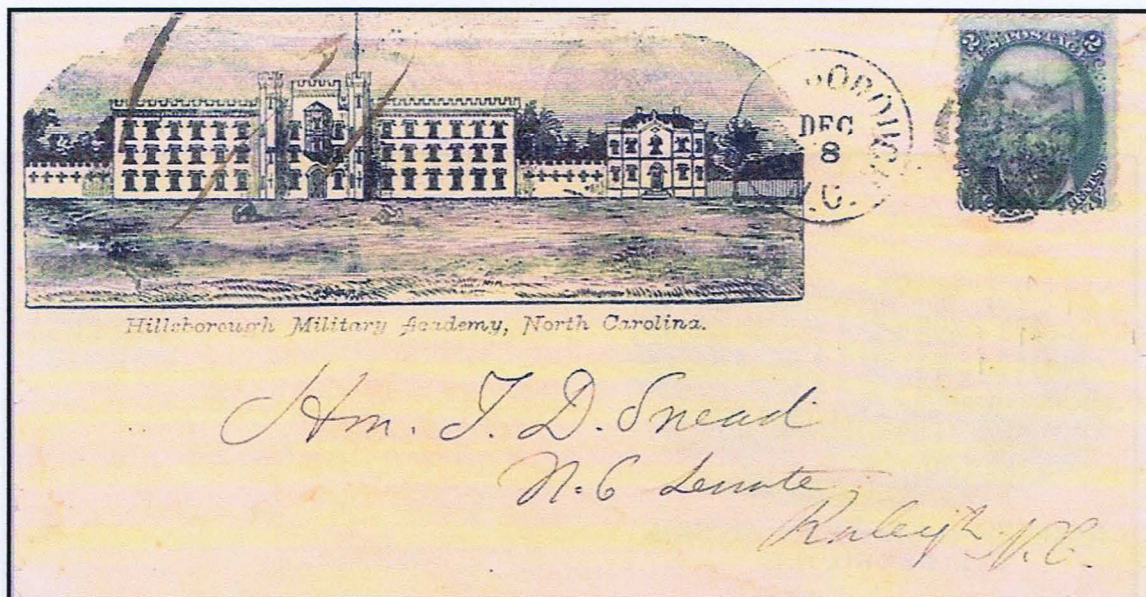 2 U.S. POSTAGE 2
DEC
8
N.C.
Hillsborough Military Academy, North Carolina.
Hon. J. D. Snead
N. C Senate
Raleigh N.C.